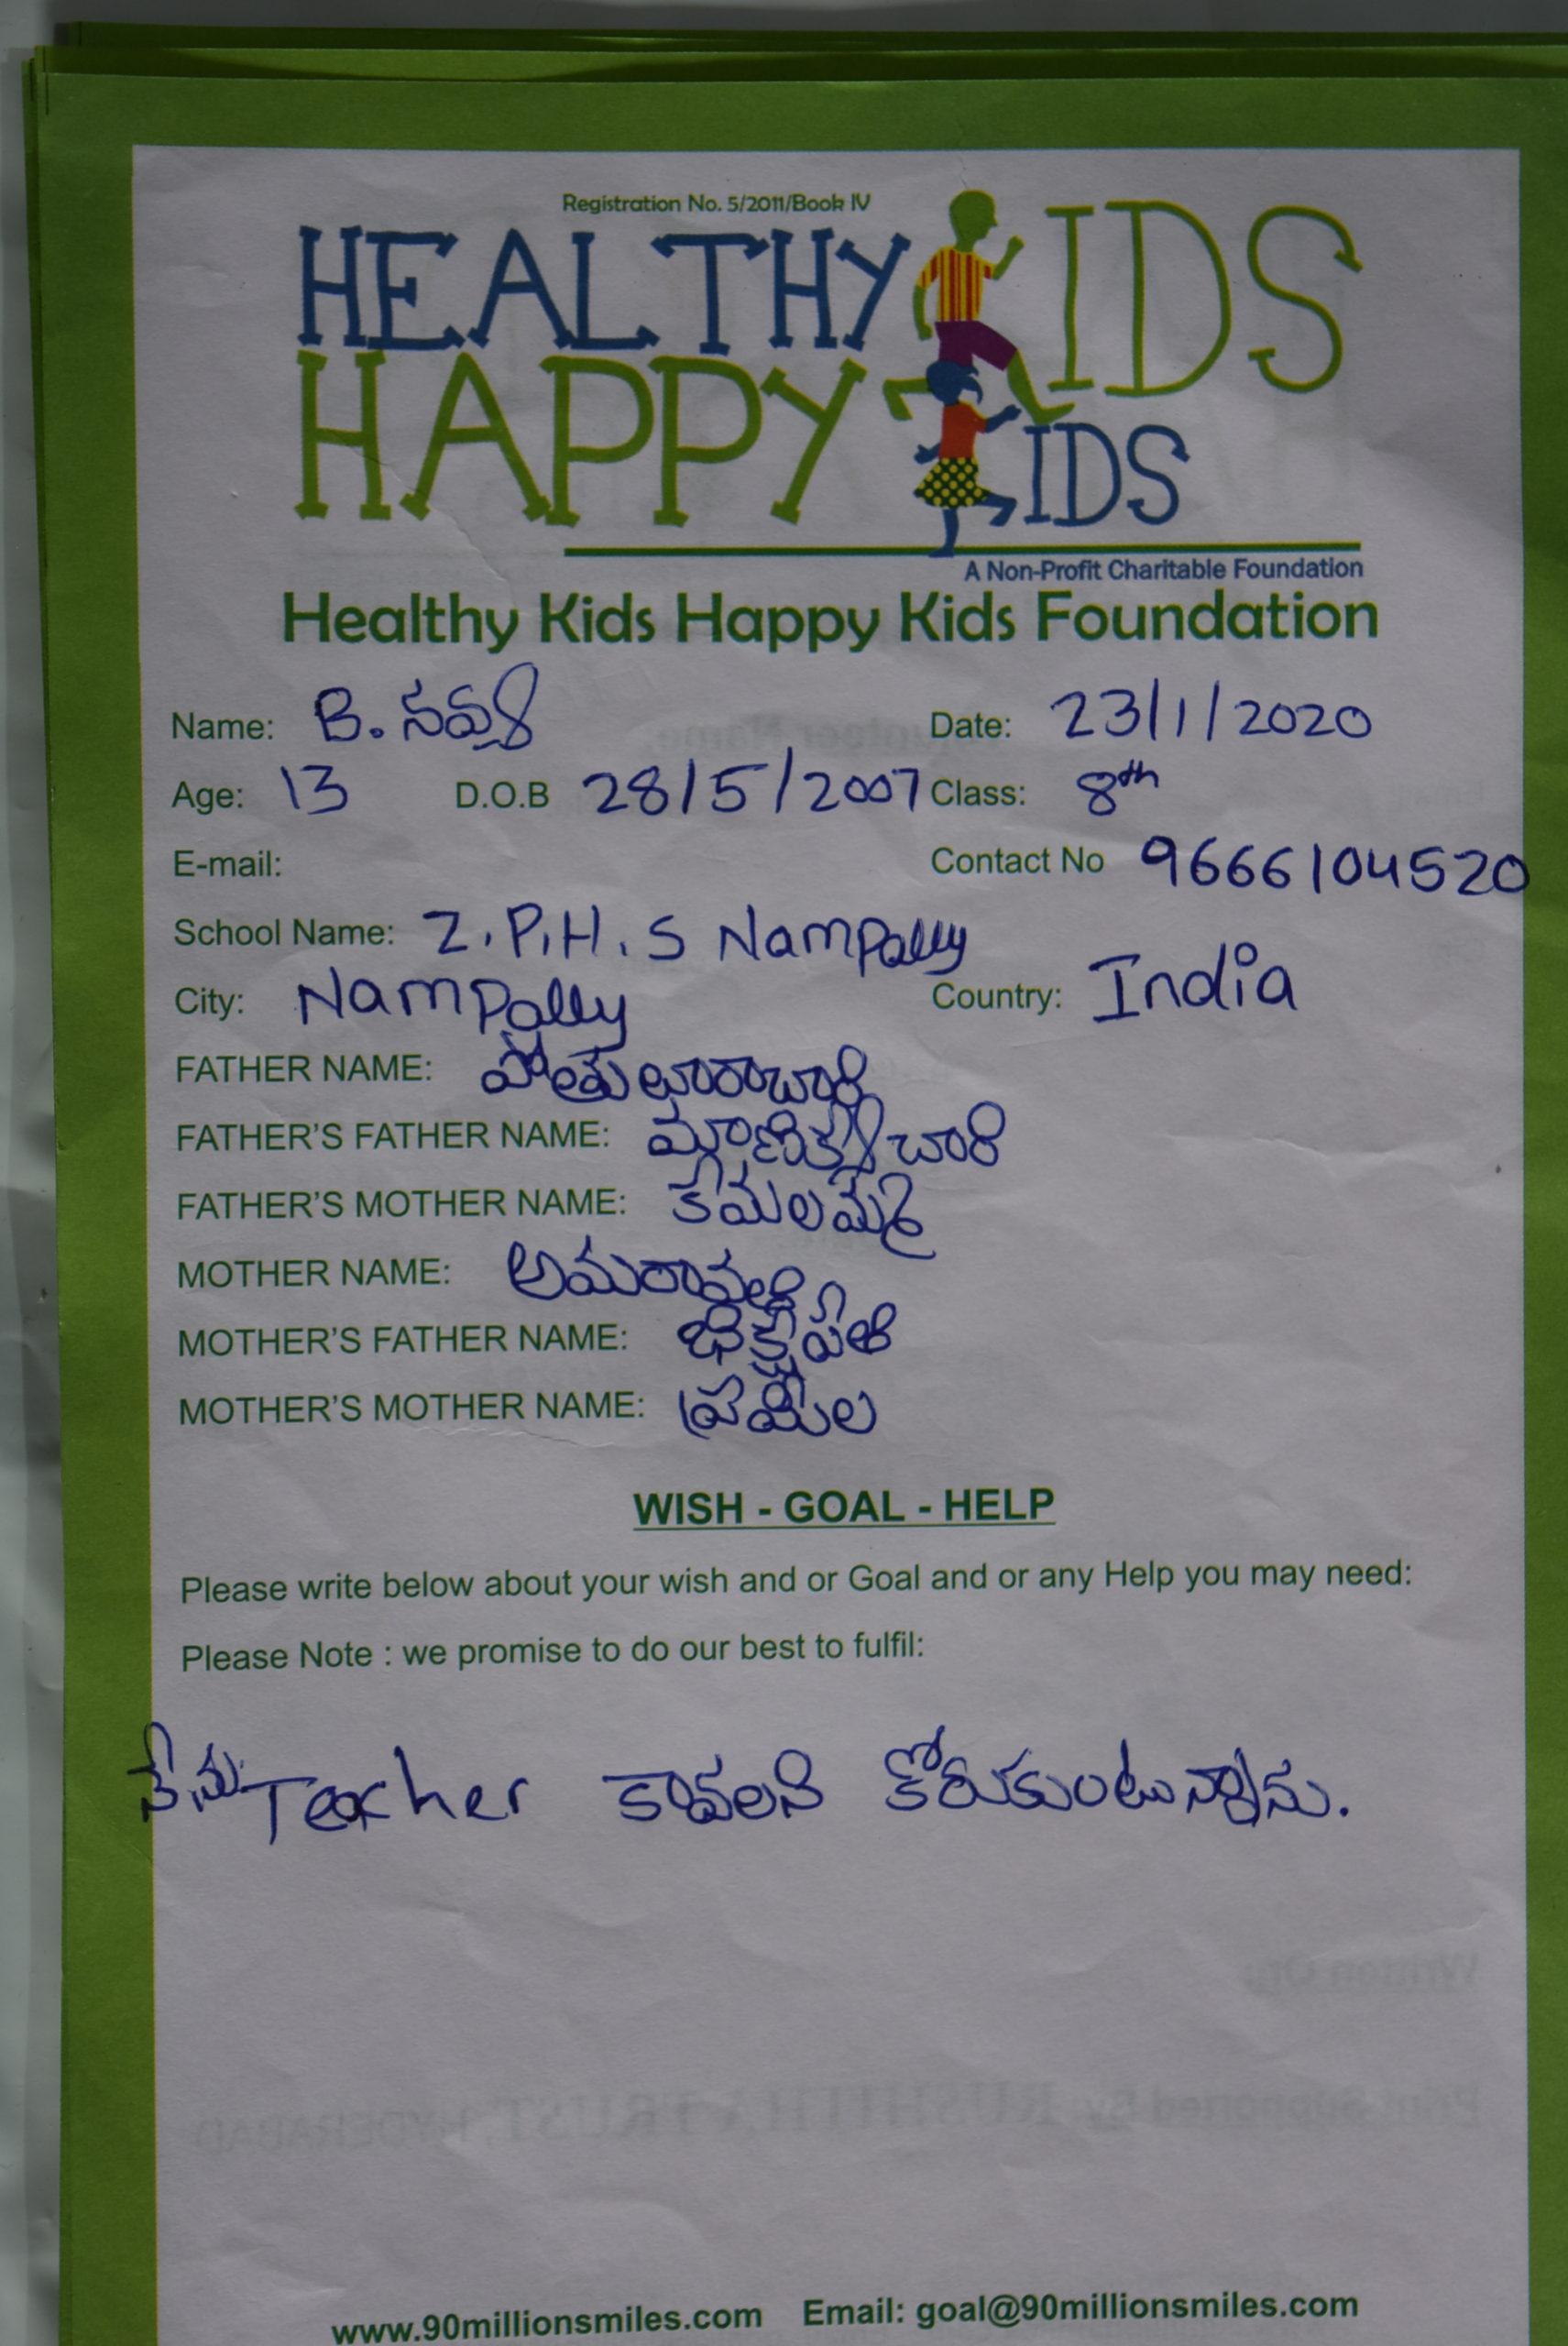 Registration No. 5/2011/Book IV
HEALTHY KIDS
HAPPY KIDS
A Non-Profit Charitable Foundation
Healthy Kids Happy Kids Foundation
Name: B. నవ్య Date: 23/1/2020
Age: 13 D.O.B 28/5/2007 Class: 8th
E-mail: Contact No 9666104520
School Name: Z.P.H.S Nampally
City: Nampally Country: India
FATHER NAME: పోతులూరాచారి
FATHER'S FATHER NAME: మాణిక్యాచారి
FATHER'S MOTHER NAME: కమలమ్మ
MOTHER NAME: అమరావతి
MOTHER'S FATHER NAME: భిక్షపతి
MOTHER'S MOTHER NAME: ప్రమీల
WISH - GOAL - HELP
Please write below about your wish and or Goal and or any Help you may need:
Please Note : we promise to do our best to fulfil:
నేను Teacher కావలని కోరుకుంటున్నాను.
www.90millionsmiles.com Email: goal@90millionsmiles.com